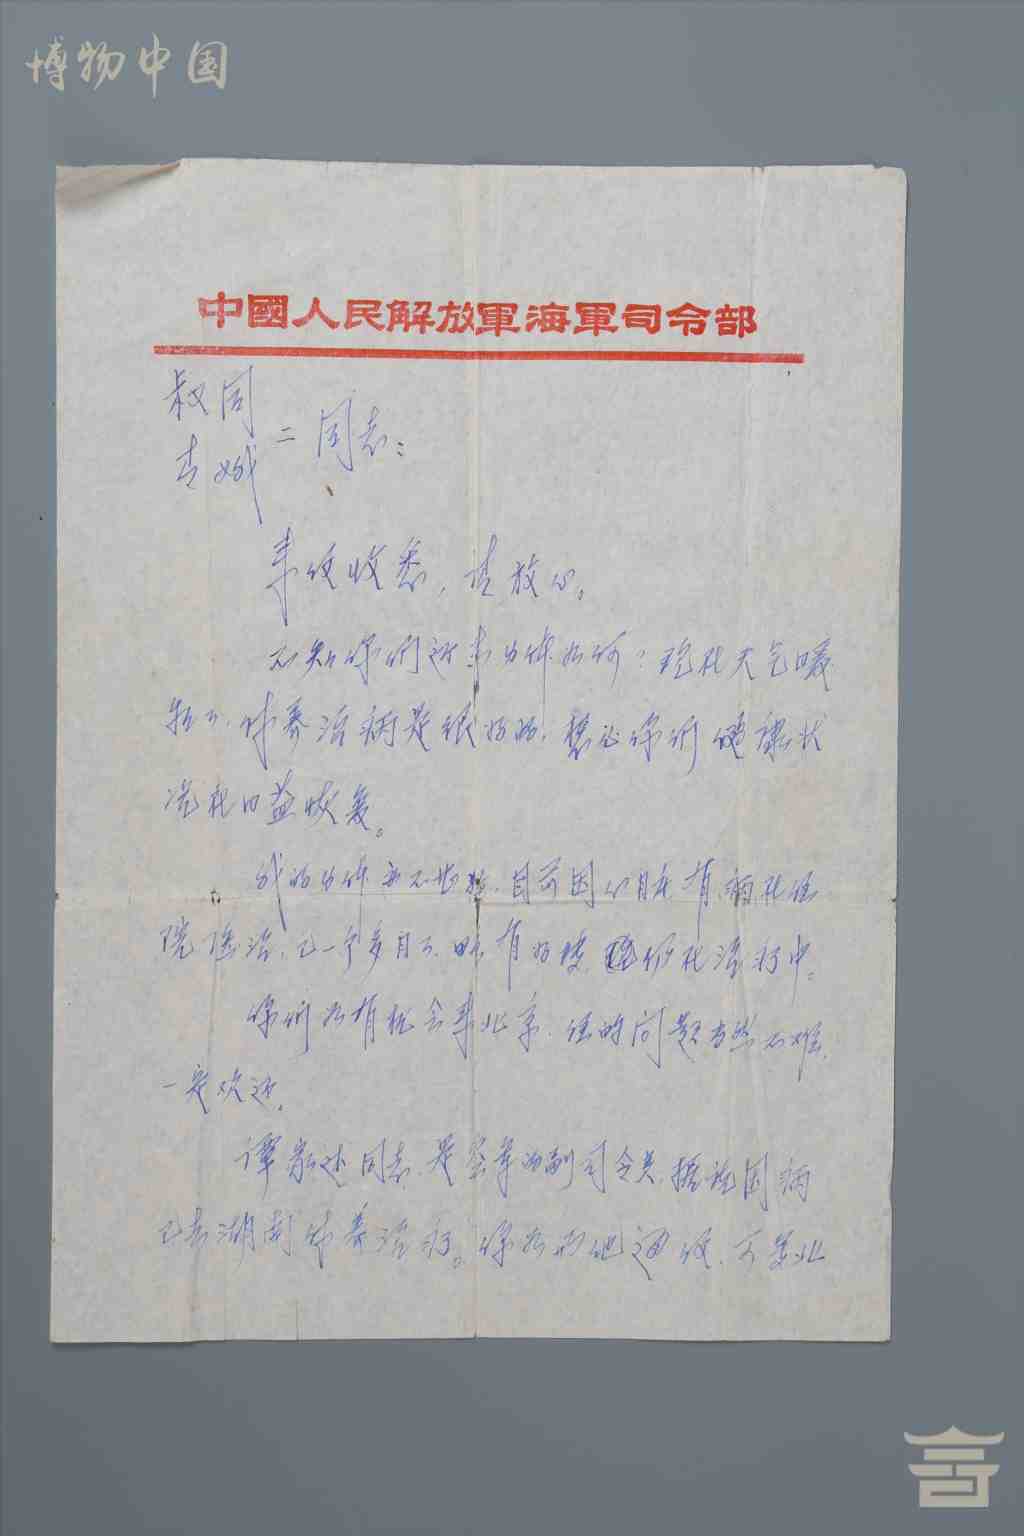 博物中国
中國人民解放軍海軍司令部
叔同
二同志:
来信收悉,请放心。
不知你们近来身体如何?现在天气暖
和了,休养治病是很好的,想必你们健康状
况在日益恢复。
我的身体亦不太好,目前因心脏有病在住
院医治,已一个多月了,略有好转,仍在治疗中。
你们如有机会来北京,住的问题当然不难,
一定欢迎。
谭家述同志,是空军的副司令员,据说因病
已去湖南休养治疗。你如而他通信,可寄北